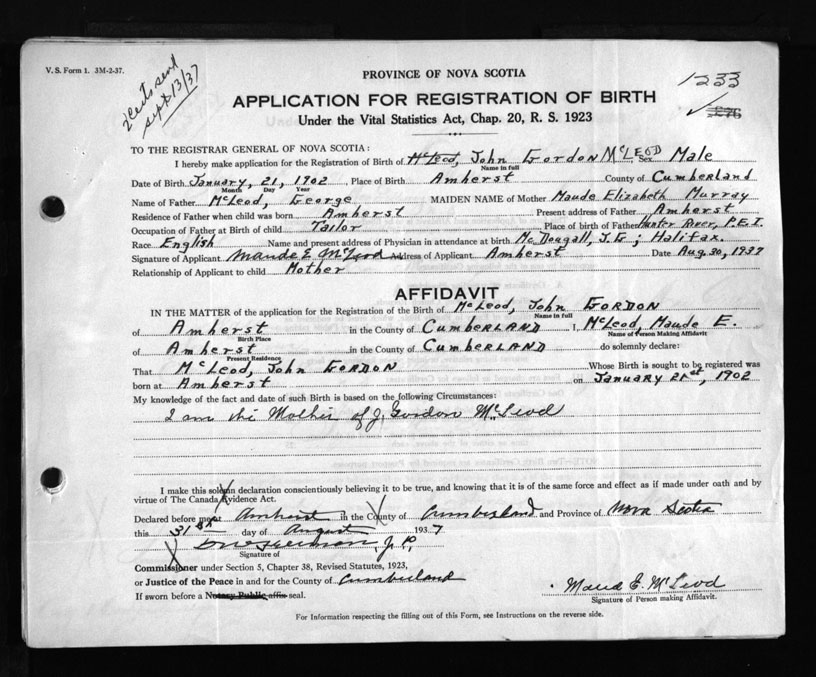 V. S. Form 1. 3M-2-37.
2 Certs sent
Sept 13/37
1233
PROVINCE OF NOVA SCOTIA
APPLICATION FOR REGISTRATION OF BIRTH
Under the Vital Statistics Act, Chap. 20, R. S. 1923
TO THE REGISTRAR GENERAL OF NOVA SCOTIA:
I hereby make application for the Registration of Birth of McLeod, John Gordon McLEOD Sex Male
Name in full
Date of Birth January, 21, 1902 Place of Birth Amherst County of Cumberland
Month Day Year
Name of Father McLeod, George MAIDEN NAME of Mother Maude Elizabeth Murray
Residence of Father when child was born Amherst Present address of Father Amherst
Occupation of Father at Birth of child Tailor Place of birth of Father Hunter River, P.E.I.
Race English Name and present address of Physician in attendance at birth McDougall, J.G; Halifax.
Signature of Applicant Maude E McLeod Address of Applicant Amherst Date Aug. 30, 1937
Relationship of Applicant to child Mother
AFFIDAVIT
IN THE MATTER of the application for the Registration of the Birth of McLeod, John GORDON
Name in full
of Amherst in the County of CUMBERLAND I, McLeod, Maude E.
Birth Place Name of Person Making Affidavit
of Amherst in the County of CUMBERLAND do solemnly declare:
Present Residence
That McLeod, John GORDON Whose Birth is sought to be registered was
born at Amherst on January 21st, 1902
My knowledge of the fact and date of such Birth is based on the following Circumstances:
I am the Mother of J. Gordon McLeod
I make this solemn declaration conscientiously believing it to be true, and knowing that it is of the same force and effect as if made under oath and by
virtue of The Canada Evidence Act.
Declared before me at Amherst in the County of Cumberland and Province of Nova Scotia
this 31st day of August 1937
J.P.
Signature of
Commissioner under Section 5, Chapter 38, Revised Statutes, 1923,
or Justice of the Peace in and for the County of Cumberland
If sworn before a Notary Public affix seal.
Maud E. McLeod
Signature of Person making Affidavit.
For Information respecting the filling out of this Form, see Instructions on the reverse side.